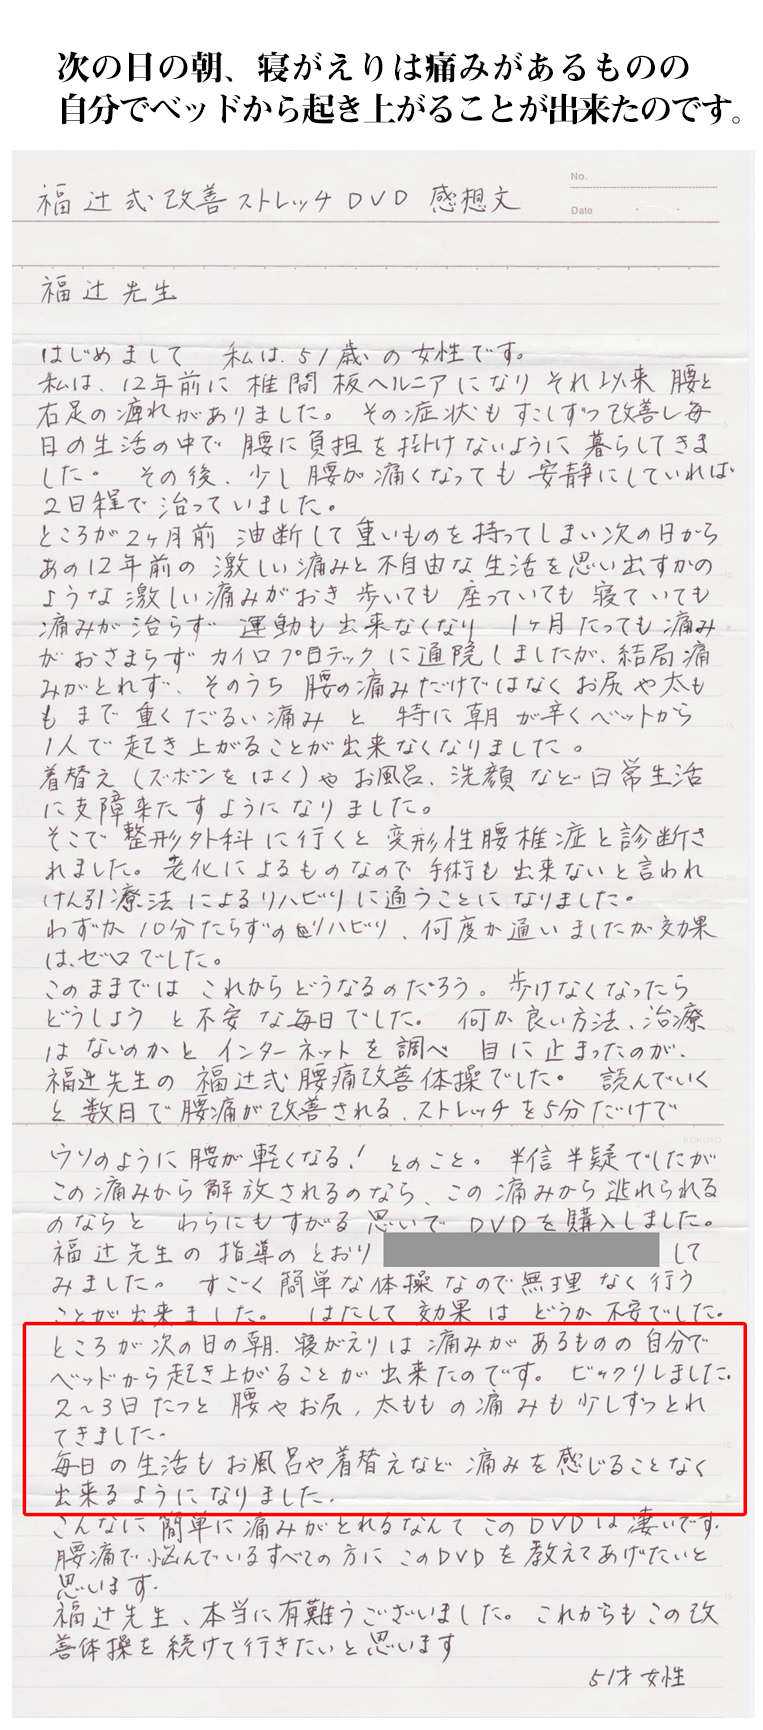 次の日の朝、寝がえりは痛みがあるものの
自分でベッドから起き上がることが出来たのです。
No.
Date
福辻式改善ストレッチDVD 感想文
福辻先生
はじめまして 私は、51歳の女性です。
私は、12年前に椎間板ヘルニアになりそれ以来腰と
右足の痺れがありました。その症状もすこしずつ改善し毎
日の生活の中で腰に負担を掛けないように暮らしてきま
した。その後、少し腰が痛くなっても安静にしていれば
2日程で治っていました。
ところが2ヶ月前 油断して重いものを持ってしまい次の日から
あの12年前の激しい痛みと不自由な生活を思い出すかの
ような激しい痛みがおき歩いても座っていても寝ていても
痛みが治らず 運動も出来なくなり 1ヶ月たっても痛み
がおさまらずカイロプロテックに通院しましたが、結局痛
みがとれず、そのうち腰の痛みだけではなくお尻や太も
もまで重くだるい痛みと 特に朝が辛くベットから
1人で起き上がることが出来なくなりました。
着替え(ズボンをはく)やお風呂、洗顔など日常生活
に支障来たすようになりました。
そこで整形外科に行くと変形性腰椎症と診断さ
れました。老化によるものなので手術も出来ないと言われ
けん引療法によるリハビリに通うことになりました。
わずか10分たらずのリハビリ、何度か通いましたが効果
は、ゼロでした。
このままでは これからどうなるのだろう。歩けなくなったら
どうしよう と不安な毎日でした。 何か良い方法、治療
はないのかとインターネットを調べ 目に止まったのが、
福辻先生の福辻式腰痛改善体操でした。 読んでいく
と数日で腰痛が改善される、ストレッチを5分だけで
KOKUYO
ウソのように腰が軽くなる! とのこと。半信半疑でしたが
この痛みから解放されるのなら、この痛みから逃れられる
のならと わらにもすがる思いでDVDを購入しました。
福辻先生の指導のとおり して
みました。すごく簡単な体操なので無理なく行う
ことが出来ました。 はたして効果はどうか不安でした。
ところが次の日の朝、寝がえりは痛みがあるものの自分で
ベッドから起き上がることが出来たのです。ビックリしました。
2〜3日たつと腰やお尻、太ももの痛みも少しずつとれ
てきました。
毎日の生活もお風呂や着替えなど痛みを感じることなく
出来るようになりました。
こんなに簡単に痛みがとれるなんてこのDVDは凄いです。
腰痛で悩んでいるすべての方にこのDVDを教えてあげたいと
思います。
福辻先生、本当に有難うございました。これからもこの改
善体操を続けて行きたいと思います
51才 女性